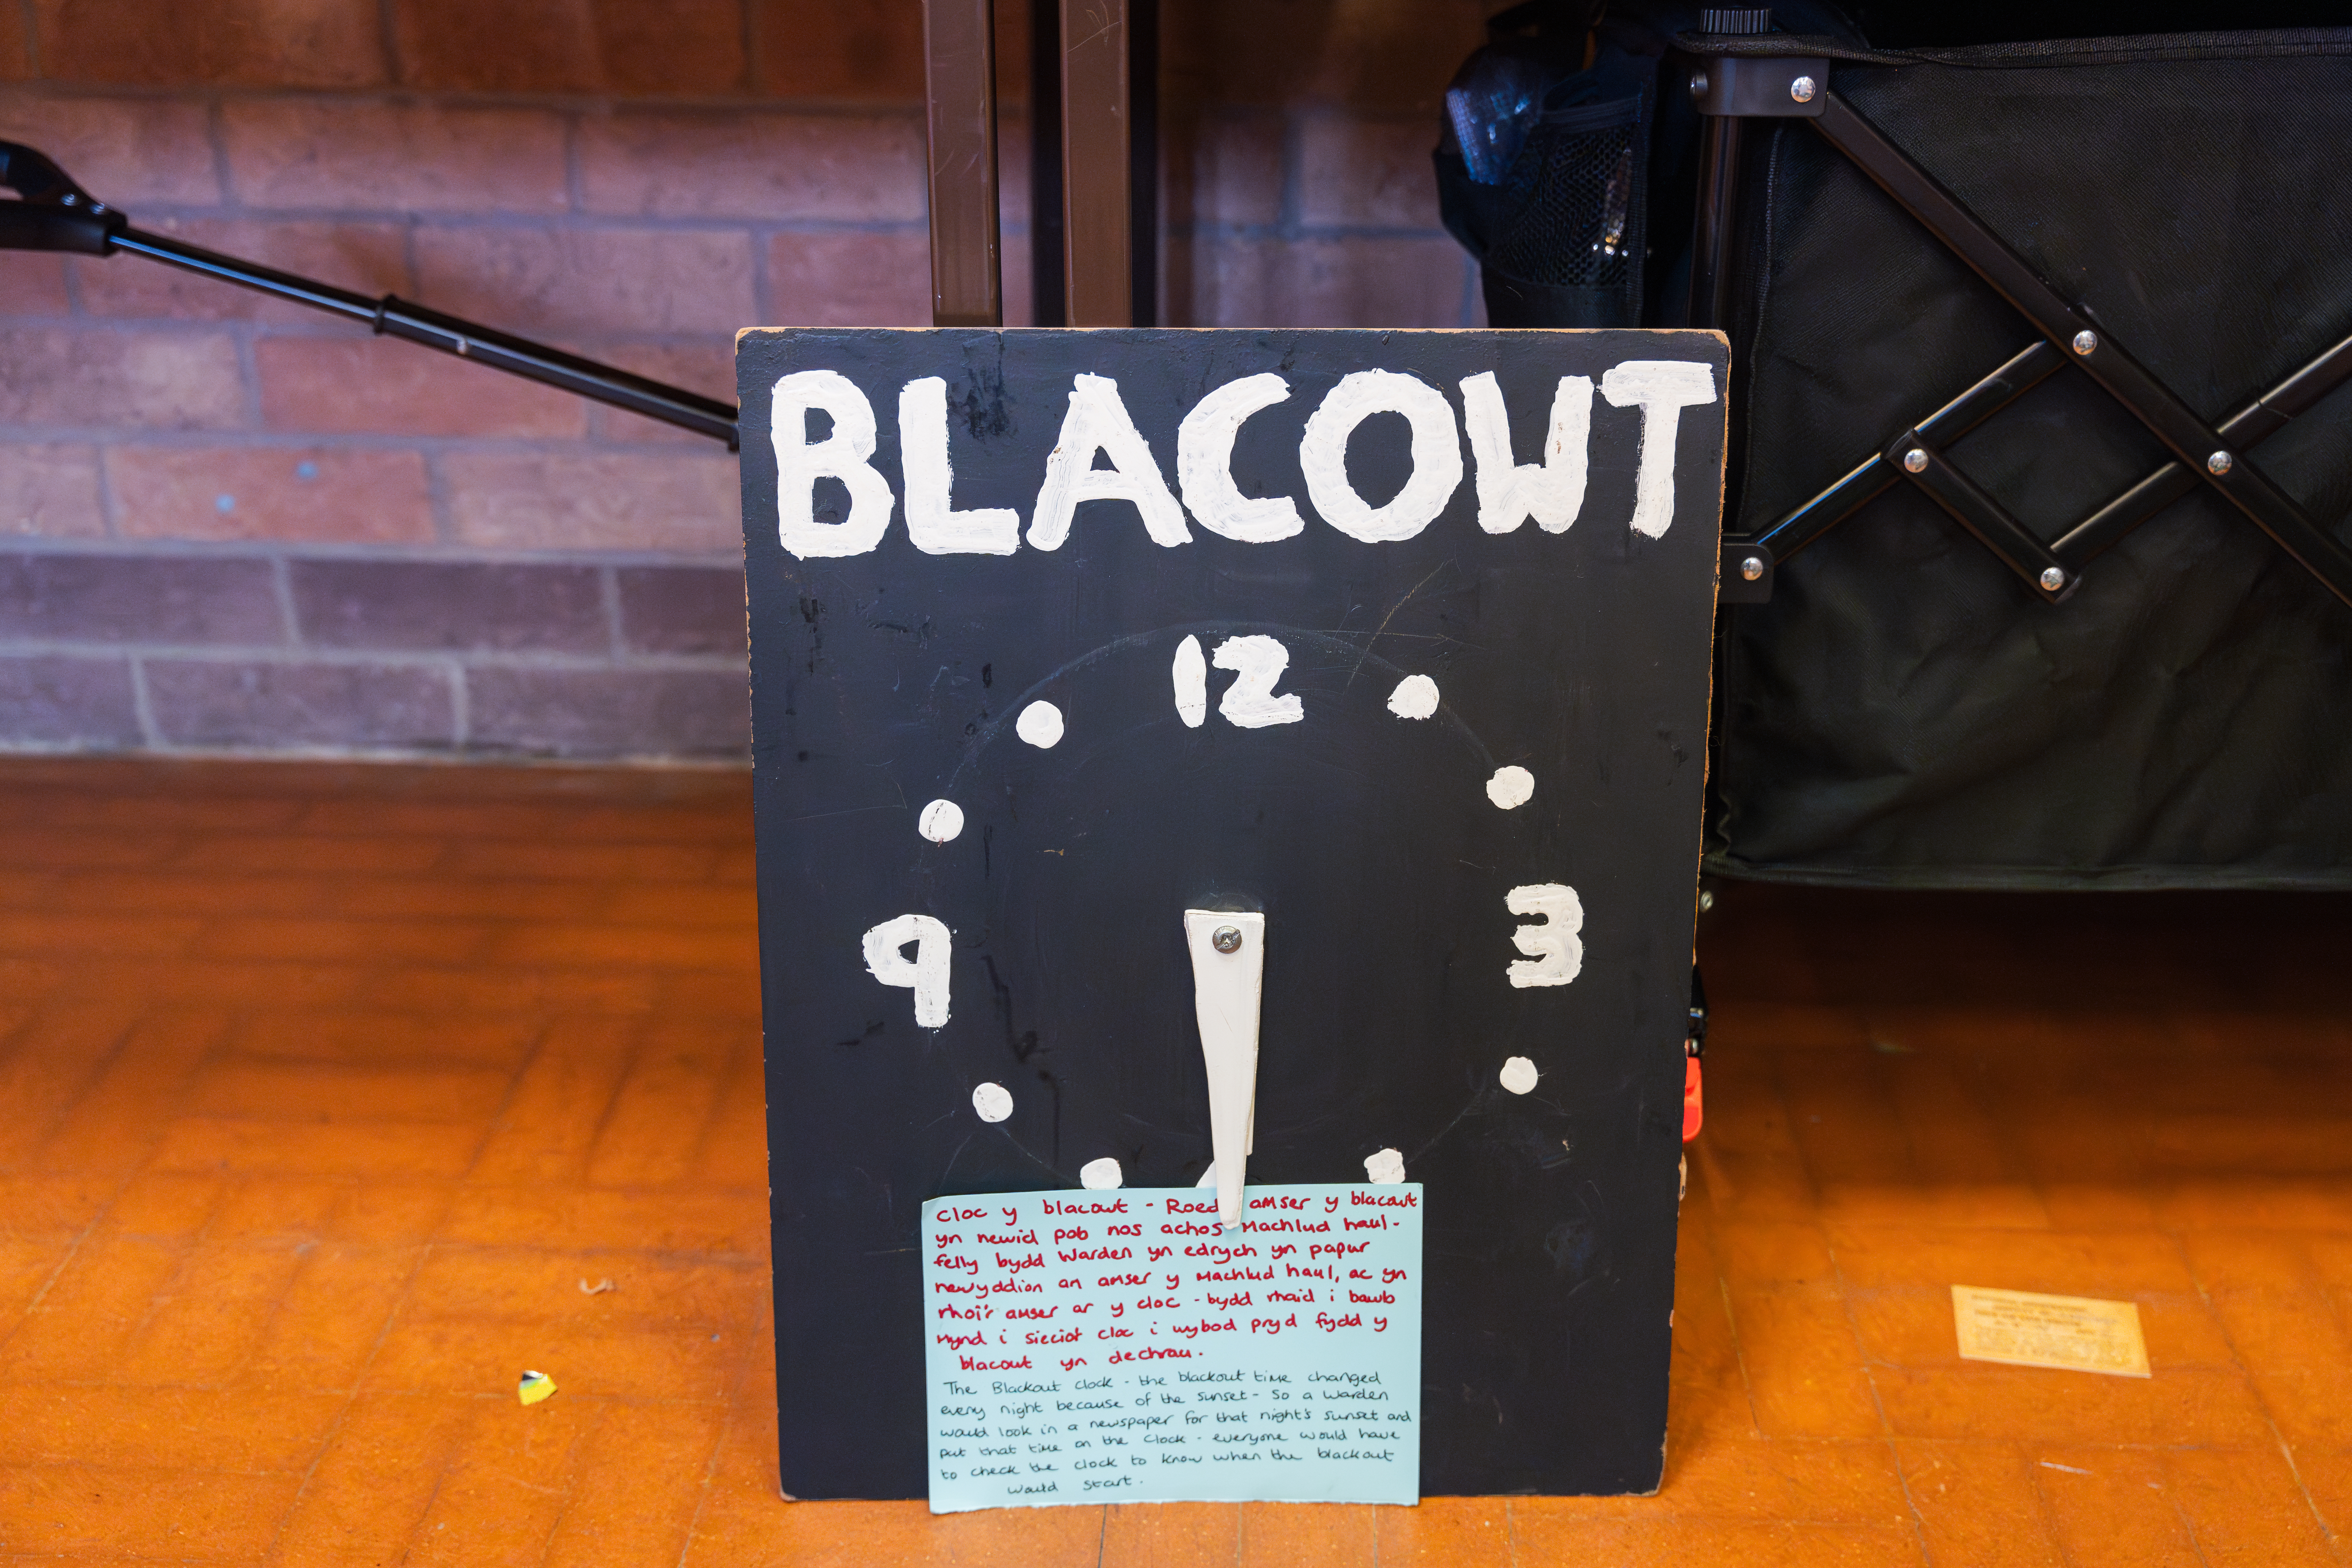 BLACOWT
12
9
3
Cloc y blacowt - Roedd amser y blacowt
yn newid pob nos achos Machlud haul -
felly bydd Warden yn edrych yn papur
newyddion an amser y Machlud haul, ac yn
rhoi'r amser ar y cloc - bydd rhaid i bawb
mynd i sieciot cloc i wybod pryd fydd y
blacowt yn dechrau.
The Blackout clock - the blackout time changed
every night because of the sunset - So a Warden
would look in a newspaper for that night's sunset and
put that time on the clock - everyone would have
to check the clock to know when the blackout
would start.